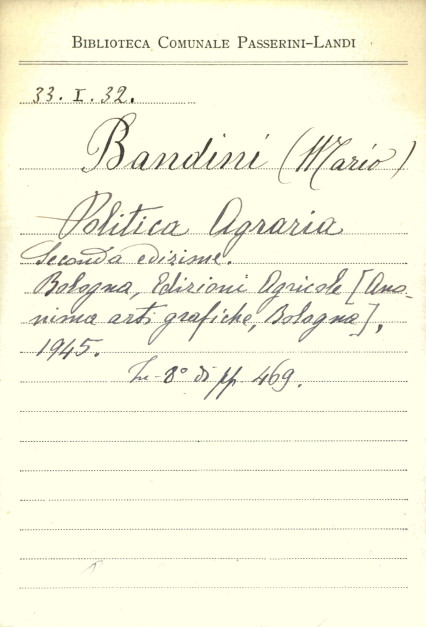 BIBLIOTECA COMUNALE PASSERINI-LANDI
33. I. 32.
Bandini (Mario)
Politica Agraria
Seconda edizione.
Bologna, Edizioni Agricole [Ano-
nima arti grafiche, Bologna],
1945.
In-8° di pp. 469.